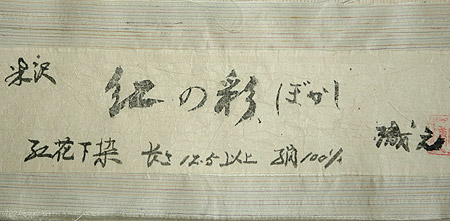 米沢
紅の彩ぼかし
紅花下染 長さ12.5以上 絹100%
織元